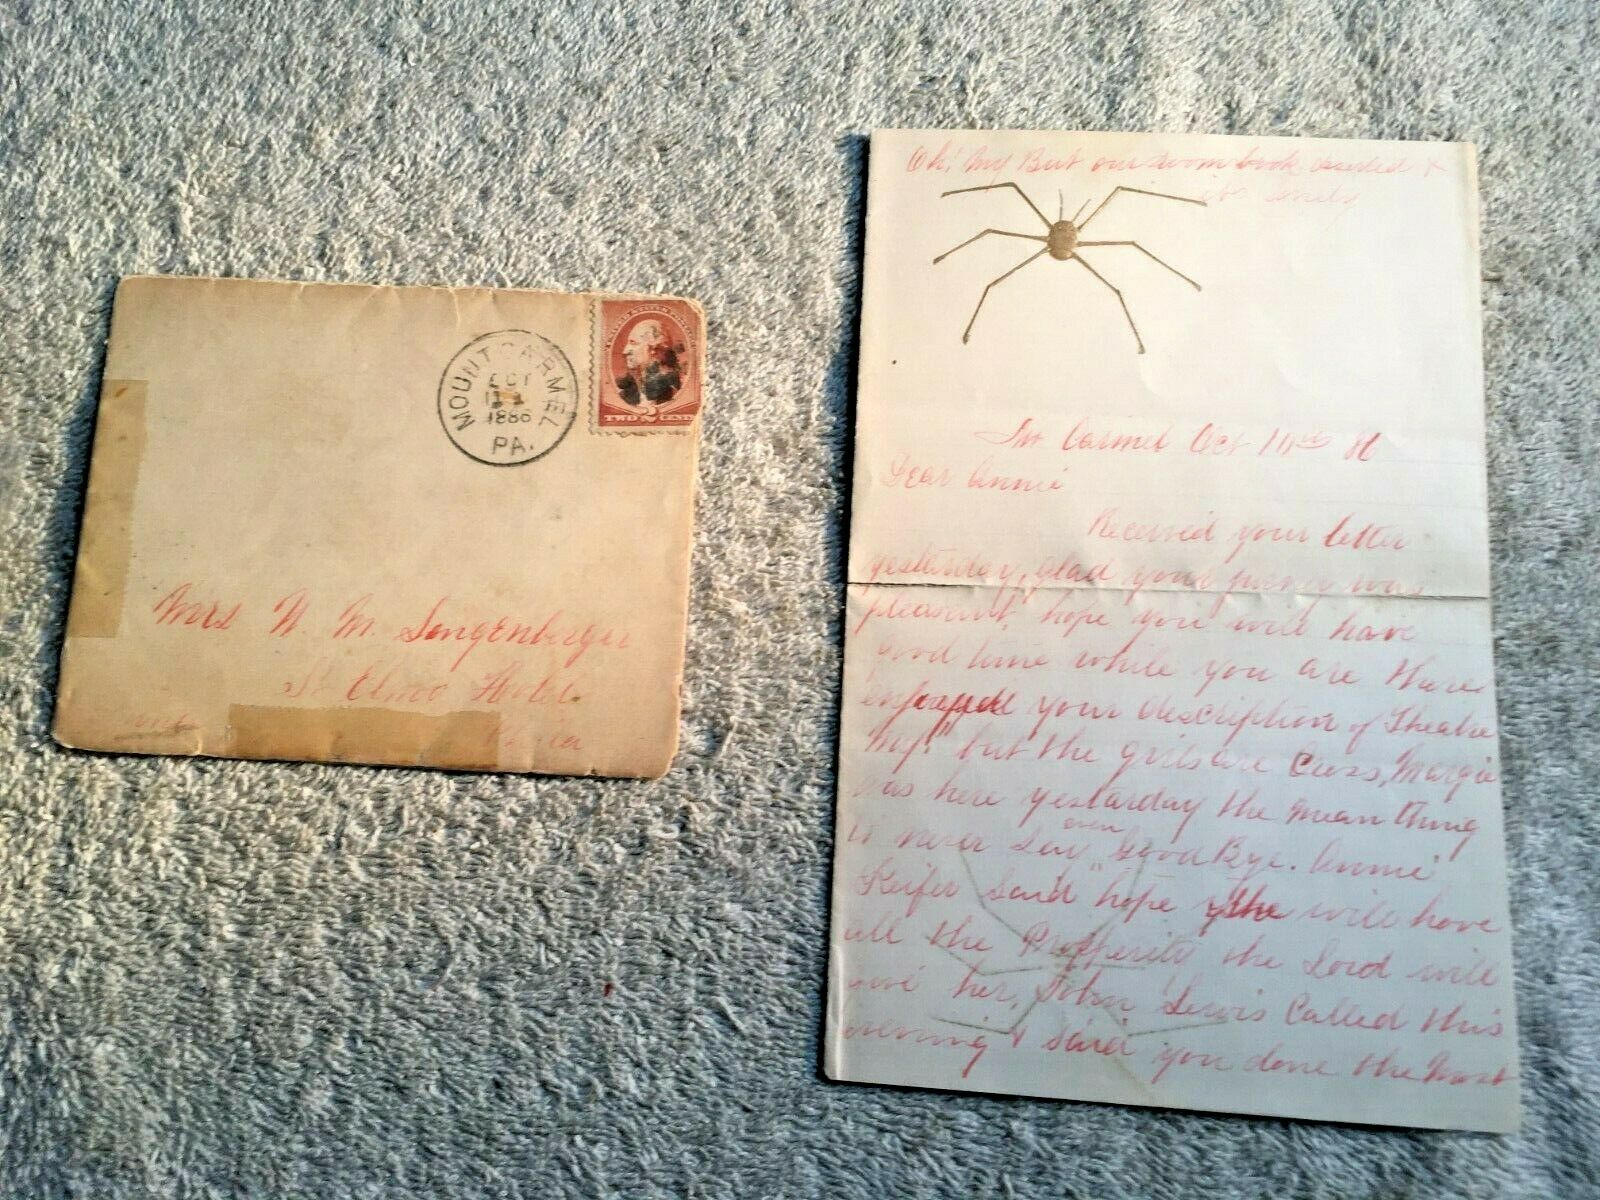 MOUNT CARMEL
OCT
1886
PA.
UNITED STATES POSTAGE
2
TWO CENTS
Mrs W. M.
St Elmo Hotel
Phila
Oh! My But our room look deserted &
its lonely
Mt Carmel Oct 86
Dear Annie
Received your letter
yestarday, glad your was
pleasent, hope you will have
good time while you are there
enjoyed your description of Theatre
but the girls are Cross, Margie
was here yestarday the mean thing
to never Say even "Good Bye. Annie
Keifer Said hope She will have
all the Prosperity the Lord will
give her, John Lewis Called this
evening & said you done the most